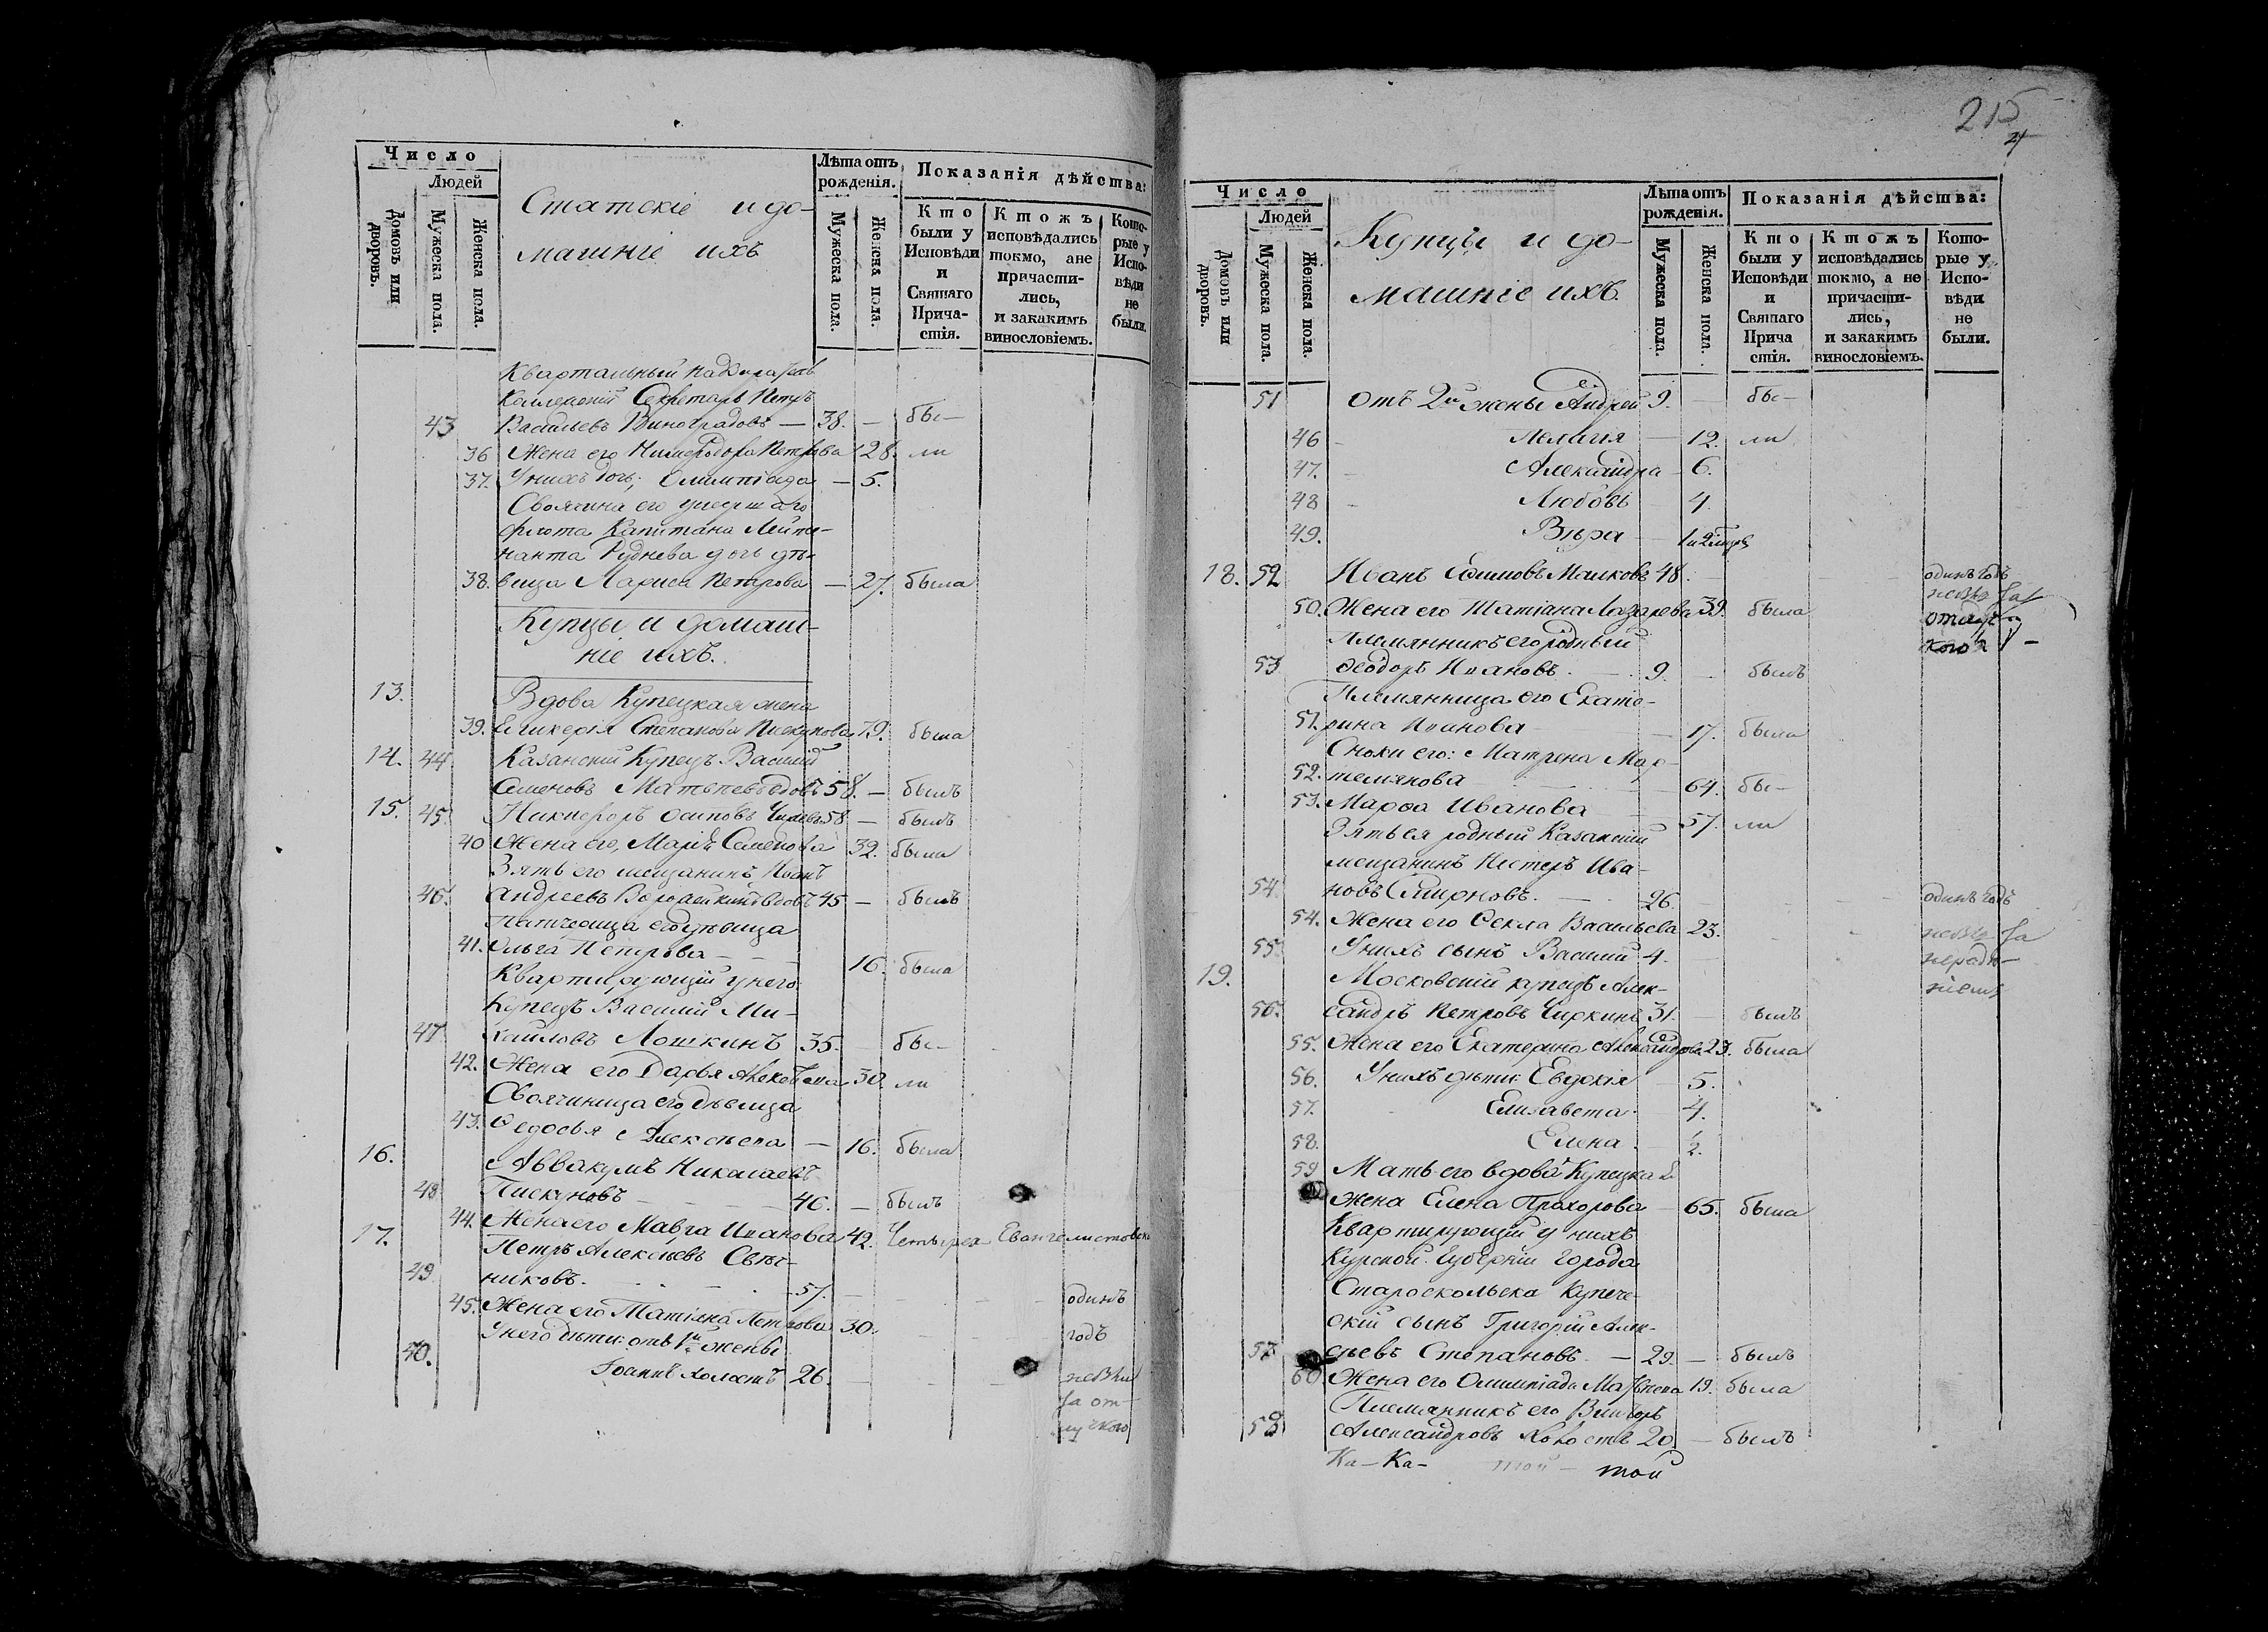 Число
Людей
Домовъ или дворовъ.
Мужеска пола.
Женска пола.
Статскіе и до-
машніе ихъ
Лѣта отъ рожденія.
Мужеска пола.
Женска пола.
Показанія дѣйства:
Кто были у Исповѣди и Святаго Прича-стія.
Ктожъ исповѣдались токмо, ане причасти-лись, и закакимъ винословіемъ.
Кото-рые у Испо-вѣди не были.
Квартальный надзиратель
Коллежскій Секретарь Петръ
43 Васильевъ Виноградовъ — 38. — бы-
36 Жена его Петрова 28. ли
37. Унихъ дочь; Олимпіада — 5.
Своячина его умершаго
флота Капитана Лейте-
нанта Руднева дочь дѣ-
38. вица Лариса Петрова — 27. была
Купцы и домаш-
ніе ихъ.
13. Вдова Купецкая жена
39. Гликерія Степанова Пискунова 79. была
14. 44 Казанскій Купецъ Василій
Семеновъ вдовъ 58. — былъ
15. 45. Никифоръ Осиповъ 58 — былъ
40 Жена его, Марія Семенова 39. была
Зять его мещанинъ Иванъ
46. Андреевъ вдовъ 45 — былъ
Падчерица его дѣвица
41. Ольга Петрова — — — 16. была
Квартирующій у него
Купецъ Василій Ми-
47 хайловъ Лошкинъ 35. — бы-
42. Жена его Дарья Алексѣева 30. ли
Своячиница его дѣвица
43. Ѳедосья Алексѣева — 16. была
16. Аввакумъ Николаевъ
48 Пискуновъ — — 46. — былъ
44. Жена его Мавра Иванова 42. Четырех Евангелистовск
17. Петръ Алексѣевъ Свѣш-
49 никовъ. — 57. — одинъ
45. Жена его Татіяна Петрова 30. годъ
У него дѣти: отъ 1й жены
50. Іоаннъ холостъ 26. — небылъ
за от-
лучкою
215
4
Число
Людей
Домовъ или дворовъ.
Мужеска пола.
Женска пола.
Купцы и до-
машніе ихъ.
Лѣта отъ рожденія.
Мужеска пола.
Женска пола.
Показанія дѣйства:
Кто были у Исповѣди и Святаго Прича стія.
Ктожъ исповѣдались токмо, а не причасти-лись, и закакимъ винословіемъ.
Кото-рые у Испо-вѣди не были.
51 Отъ 2й жены Андрей 9. — бы-
46 Пелагія — 12. ли
47. Александра — 6.
48 Любовь — 4.
49. Вѣра — 1
18. 52 Иванъ Ефимовъ Малковъ 48. — одинъ годъ
50. Жена его Татіана Лазарева 39. была небылъ за отлуч-кою
Племянникъ его родный
53 Ѳеодоръ Ивановъ. — 9. — былъ
Племянница его Екате-
51. рина Иванова — 17. была
Снохи его: Матрена Мар-
52. темянова — 64. бы-
53. Марѳа Иванова — 57. ли
Зять ея родный Казанскій
мещанинъ Нестеръ Ива-
54. новъ Смирновъ. — 26. — одинъ годъ
54. Жена его Ѳекла Васильева 23. небылъ за
55. Унихъ сынъ Василій 4. — нерадѣ-
19. Московскій купецъ Алек- ніемъ
56. сандръ Петровъ Чиркинъ 31. — былъ
55. Жена его Екатерина Александрова 23. была
56. Унихъ дѣти: Евдокія — 5.
57. Елизавета — 4.
58. Елена. — 1/2.
59 Мать его вдова Купецкая
жена Елена Прохорова — 65. была
Квартирующій у нихъ
Курской Губерніи города
Староскольска Купече-
скій сынъ Григорій Алек-
57 сѣевъ Степановъ. — 29. — былъ
60 Жена его Олимпіада Матвѣева 19. была
Племянникъ его Викторъ
58 Александровъ холостъ 20 — былъ
Ка- Ка- той — той